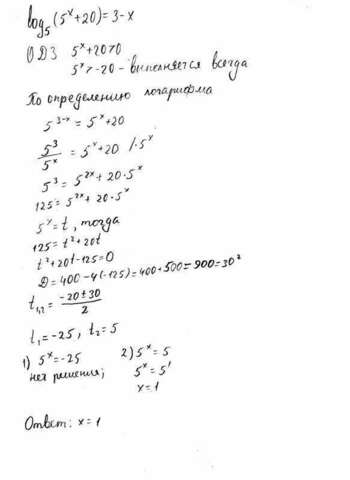 log₅(5ˣ+20)=3-x
ОДЗ 5ˣ+20>0
5ˣ>-20 - выполняется всегда
По определению логарифма
5³⁻ˣ = 5ˣ+20
5³/5ˣ = 5ˣ+20 /·5ˣ
5³ = 5²ˣ + 20·5ˣ
125 = 5²ˣ + 20·5ˣ
5ˣ = t, тогда
125 = t²+20t
t²+20t-125=0
D = 400-4(-125) = 400+500 = 900 = 30²
t₁,₂ = (-20±30)/2
t₁ = -25, t₂ = 5
1) 5ˣ = -25
нет решения;
2) 5ˣ = 5
5ˣ = 5¹
x = 1
Ответ: x = 1